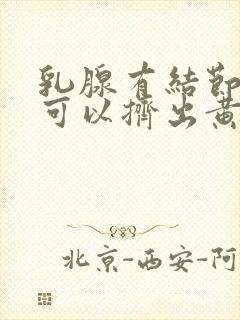 乳腺有結節
可以擠出黃
北京-西安-阿